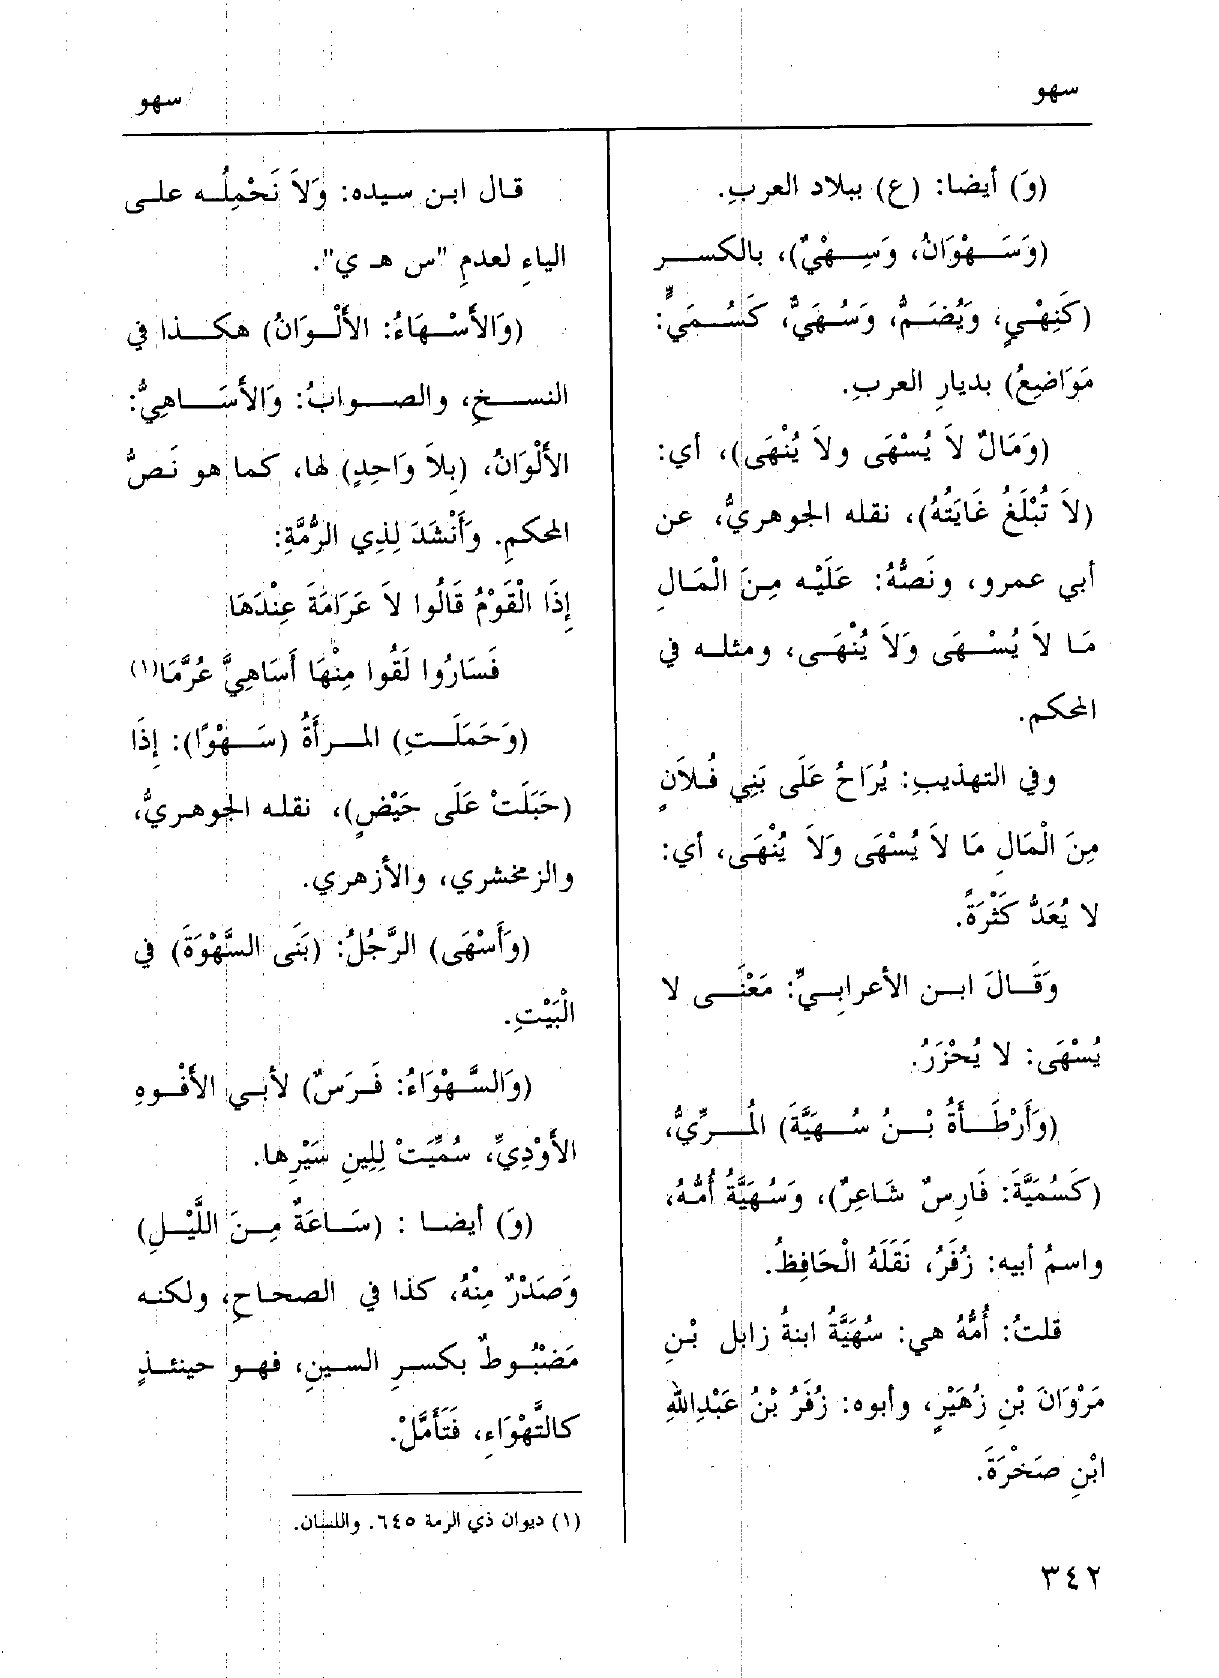 سهو
سهو
(وَ) أيضا: (ع) ببلاد العربِ.
(وَسَهْوَانُ، وَسِهْيٌ)، بالكسر
(كَنِهْيٍ، وَيُضَمُّ، وَسُهَيٌّ، كَسُمَيٍّ:
مَوَاضِعُ) بديارِ العربِ.
(وَمَالٌ لاَ يُسْهَى ولاَ يُنْهَى)، أي:
(لاَ تُبْلَغُ غَايَتُهُ)، نقله الجوهريُّ، عن
أبي عمرو، ونَصُّهُ: عَلَيْه مِنَ الْمَالِ
مَا لاَ يُسْهَى وَلاَ يُنْهَى، ومثله في
المحكم.
وفي التهذيبِ: يُرَاحُ عَلَى بَنِي فُلاَنٍ
مِنَ الْمَالِ مَا لاَ يُسْهَى وَلاَ يُنْهَى، أي:
لا يُعَدُّ كَثْرَةً.
وَقَالَ ابن الأعرابِيِّ: مَعْنَى لا
يُسْهَى: لا يُحْزَرُ.
(وَأَرْطَأَةُ بْنُ سُهَيَّةَ) المُرِّيُّ،
(كَسُمَيَّةَ: فَارِسٌ شَاعِرٌ)، وَسُهَيَّةُ أُمُّهُ،
واسمُ أبيه: زُفَرُ، نَقَلَهُ الْحَافِظُ.
قلتُ: أُمُّهُ هي: سُهَيَّةُ ابنةُ زابل بْنِ
مَرْوَانَ بْنِ زُهَيْرٍ، وأبوه: زُفَرُ بْنُ عَبْدِاللهِ
ابْنِ صَخْرَةَ.
قال ابن سيده: وَلاَ نَحْمِلُه على
الياءِ لعدمِ "س هـ ي".
(وَالأَسْهَاءُ: الأَلْوَانُ) هكذا في
النسخِ، والصوابُ: وَالأَسَاهِيُّ:
الأَلْوَانُ، (بِلاَ وَاحِدٍ) لها، كما هو نَصُّ
المحكمِ. وَأَنْشَدَ لِذِي الرُّمَّةِ:
إِذَا الْقَوْمُ قَالُوا لاَ عَرَامَةَ عِنْدَهَا
فَسَارُوا لَقُوا مِنْهَا أَسَاهِيَّ عُرَّمَا(١)
(وَحَمَلَتِ) المرأَةُ (سَهْوًا): إِذَا
(حَبَلَتْ عَلَى حَيْضٍ)، نقله الجوهريُّ،
والزمخشري، والأزهري.
(وَأَسْهَى) الرَّجُلُ: (بَنَى السَّهْوَةَ) في
الْبَيْتِ.
(وَالسَّهْوَاءُ: فَرَسٌ) لأبي الأَفْوهِ
الأَوْدِيِّ، سُمِّيَتْ لِلِينِ سَيْرِها.
(وَ) أيضا : (سَاعَةٌ مِنَ اللَّيْلِ)
وَصَدْرٌ مِنْهُ، كذا في الصحاحِ، ولكنه
مَضْبُوطٌ بكسرِ السينِ، فهو حينئذٍ
كالتَّهْوَاءِ، فَتَأَمَّلْ.
(١) ديوان ذي الرمة ٦٤٥. واللسان.
٣٤٢